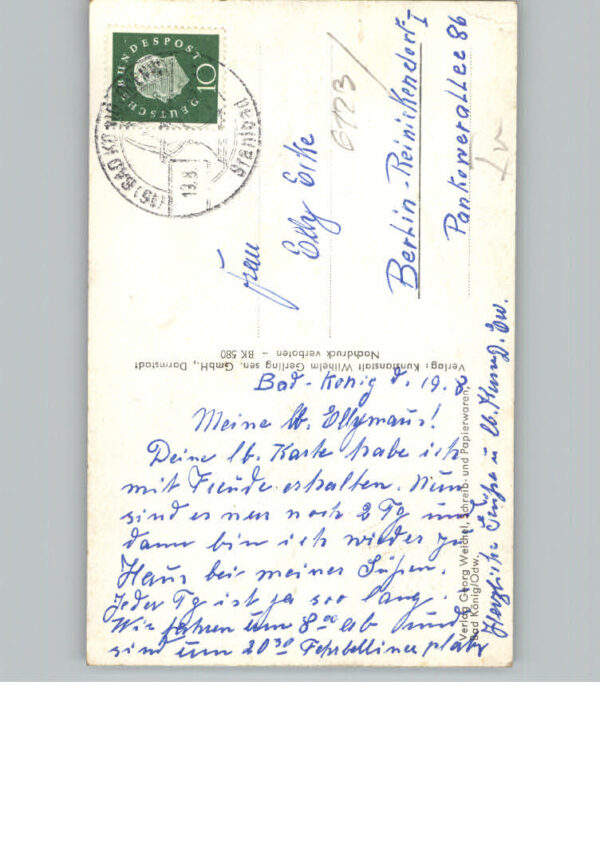 Bad-König d. 19.8.
Meine lb. Ellymaus!
Deine lb. Karte habe ich
mit Freude erhalten. Nun
sind es nur noch 2 Tg und
dann bin ich wieder zu
Haus bei meiner Süßen.
Jeder Tg ist ja soo lang.
Wir fahren um 8⁰⁰ ab und
sind um 20³⁰ Fehrbelliner platz
Herzliche Grüße u lb.
Verlag Georg Weichel, Schreib- und Papierwaren,
Bad König/Odw.
Verlag: Kunstanstalt Wilhelm Gerling sen. GmbH., Darmstadt
Nachdruck verboten – BK 580
DEUTSCHE BUNDESPOST
10
(16) BAD KÖNIG
19.8.
Frau
Elly
Berlin-Reinickendorf-I
Pankowerallee 86
6123